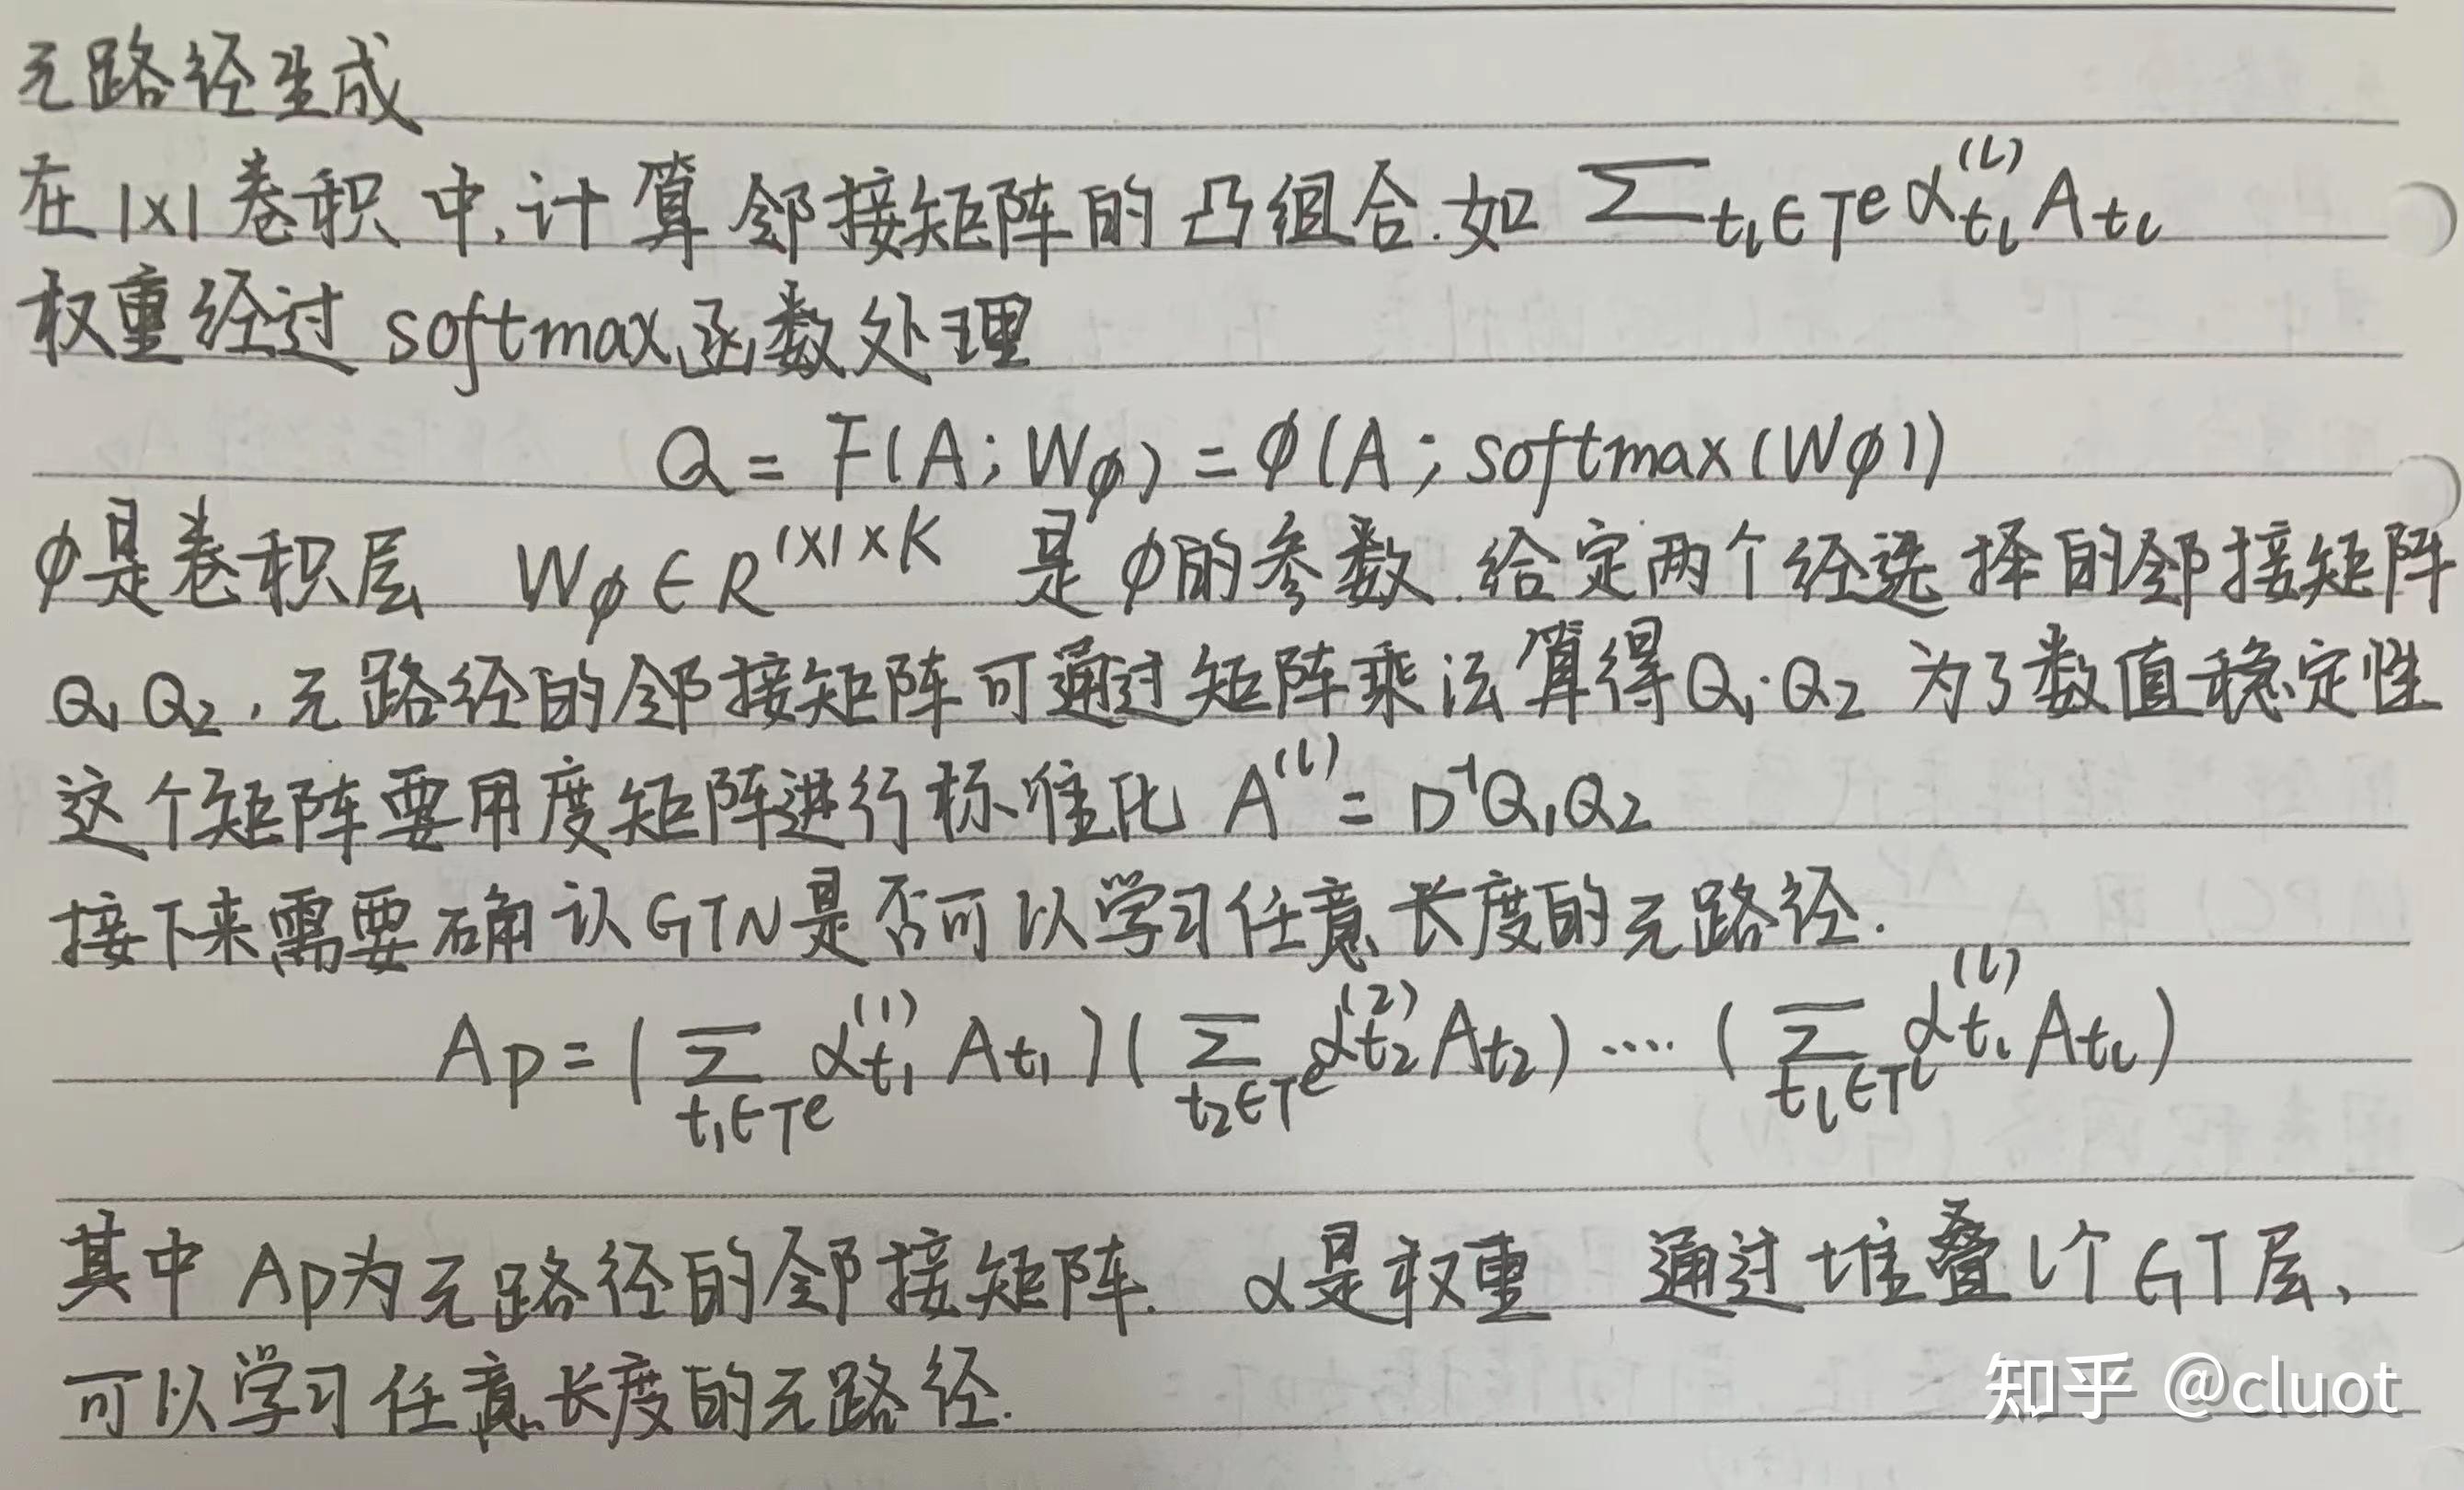 元路径生成
在1×1卷积中,计算邻接矩阵的凸组合.如 ∑_{t_l∈T^e} α_{t_l}^{(l)} A_{t_l}
权重经过softmax函数处理
Q = F(A; W_φ) = φ(A; softmax(W_φ))
φ是卷积层 W_φ∈R^{1×1×K} 是φ的参数.给定两个经选择的邻接矩阵
Q₁ Q₂,元路径的邻接矩阵可通过矩阵乘法算得Q₁·Q₂ 为了数值稳定性
这个矩阵要用度矩阵进行标准化 A^{(l)} = D^{-1}Q₁Q₂
接下来需要确认GTN是否可以学习任意长度的元路径.
A_P = (∑_{t₁∈T^e} α_{t₁}^{(1)} A_{t₁})(∑_{t₂∈T^e} α_{t₂}^{(2)} A_{t₂})····(∑_{t_l∈T^l} α_{t_l}^{(l)} A_{t_l})
其中 A_P为元路径的邻接矩阵. α是权重 通过堆叠l个GT层、
可以学习任意长度的元路径.
知乎 @cluot